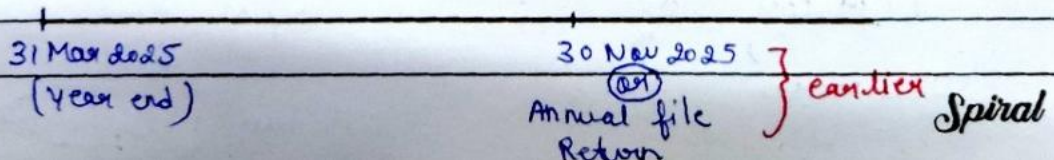 31 Mar 2025
(Year end)
30 Nov 2025
or
Annual file
Return
earlier
Spiral